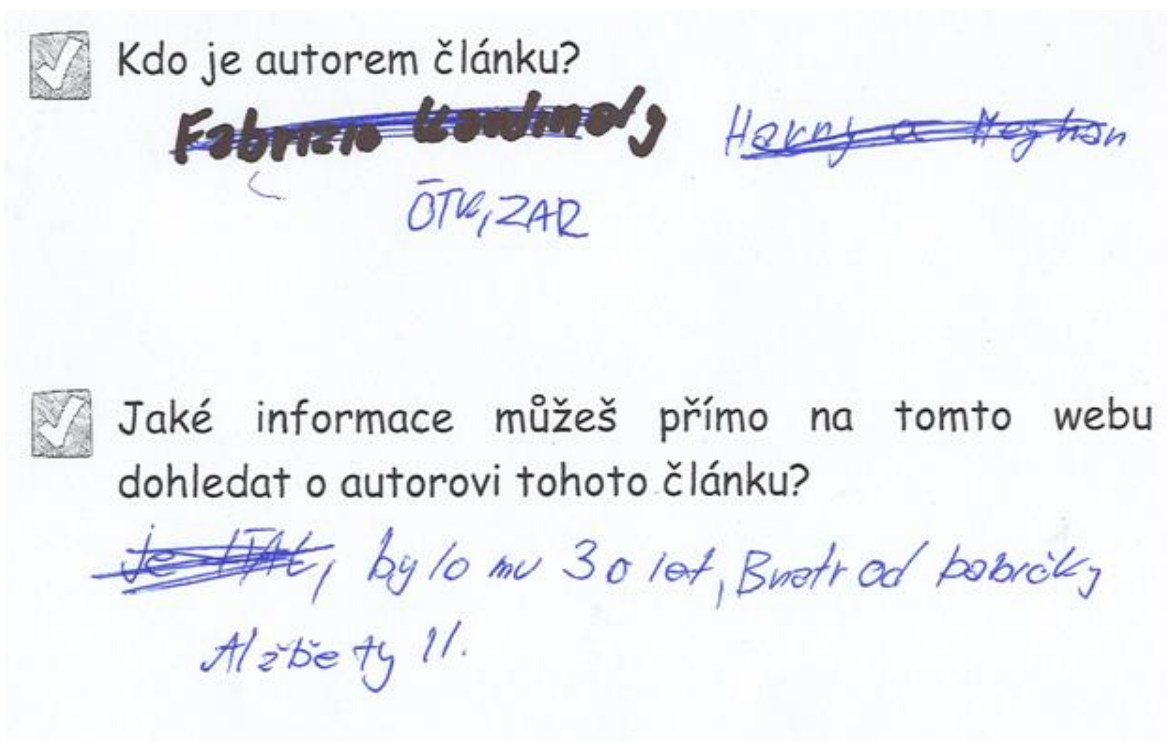 Kdo je autorem článku?
Fabrizio Harry a Meghan
ČTK, ZAR
Jaké informace můžeš přímo na tomto webu
dohledat o autorovi tohoto článku?
je, bylo mu 30 let, Bratr od babičky
Alžběty II.